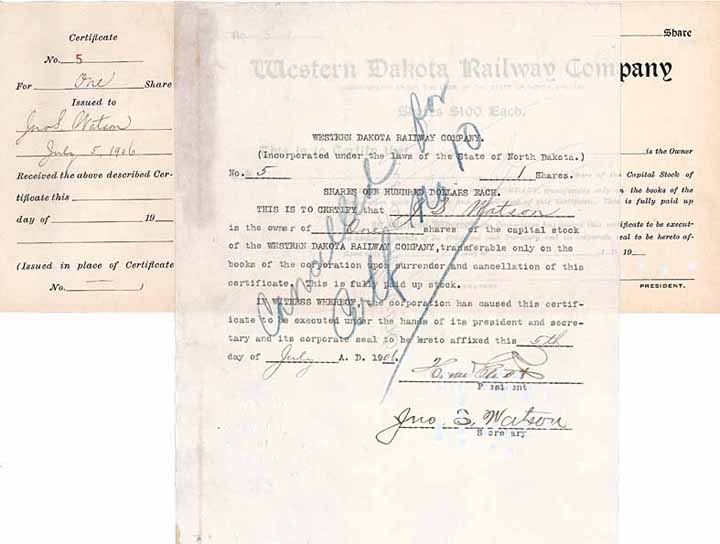 Certificate
No. 5
For One Share
Issued to
Jno S. Watson
July 5, 1906
Received the above described Cer-
tificate this
day of 19
(Issued in place of Certificate
No. )
No. 5 1 Share
Western Dakota Railway Company
Shares $100 Each.
This is to Certify that is the Owner
Capital Stock of
transferable only on the books of the
This is fully paid up
this certificate to be execut-
seal to be hereto af-
A.D. 19
PRESIDENT.
WESTERN DAKOTA RAILWAY COMPANY.
(Incorporated under the laws of the State of North Dakota.)
No. 5 1 Shares.
SHARES ONE HUNDRED DOLLARS EACH.
THIS IS TO CERTIFY that S. Watson
is the owner of One shares of the capital stock
of the WESTERN DAKOTA RAILWAY COMPANY, transferable only on the
books of the corporation upon surrender and cancellation of this
certificate. This is fully paid up stock.
IN WITNESS WHEREOF, the corporation has caused this certif-
icate to be executed under the hands of its president and secre-
tary and its corporate seal to be hereto affixed this 5th
day of July A. D. 1906.
President
Jno. S. Watson
Secretary
Cancelled for
Certf No 10